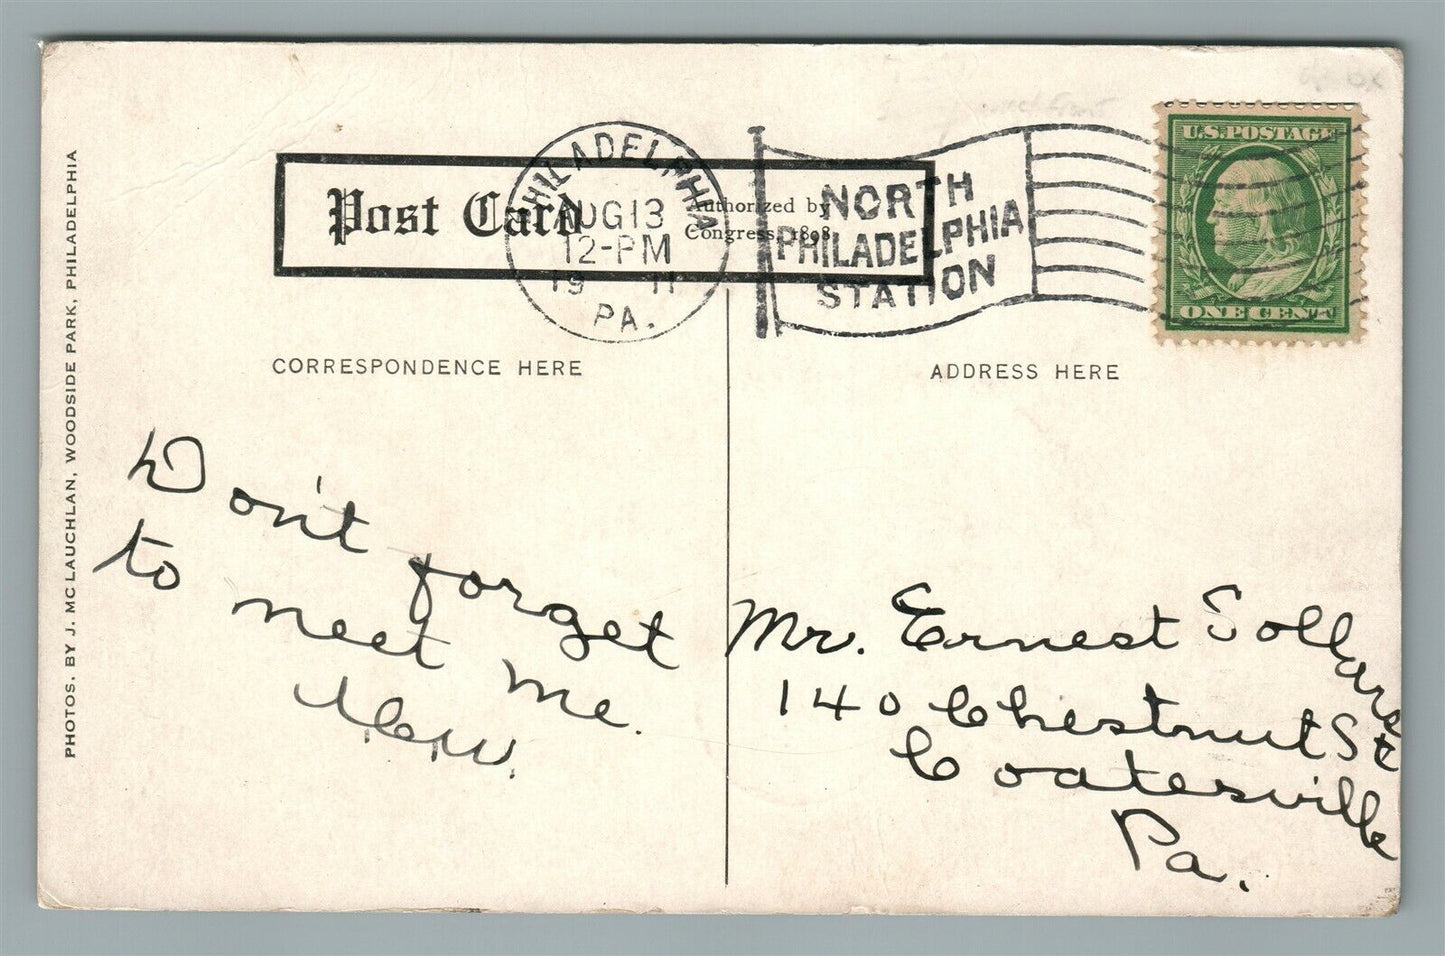 PHOTOS. BY J. MCLAUCHLAN, WOODSIDE PARK, PHILADELPHIA
Post Card
Authorized by
Congress, 1898.
PHILADELPHIA
AUG 13
12-PM
19 11
PA.
NORTH
PHILADELPHIA
STATION
U.S. POSTAGE
ONE CENT
CORRESPONDENCE HERE
Don't forget
to meet me.
ADDRESS HERE
Mr. Ernest Sollars
140 Chestnut St
Coatesville
Pa.